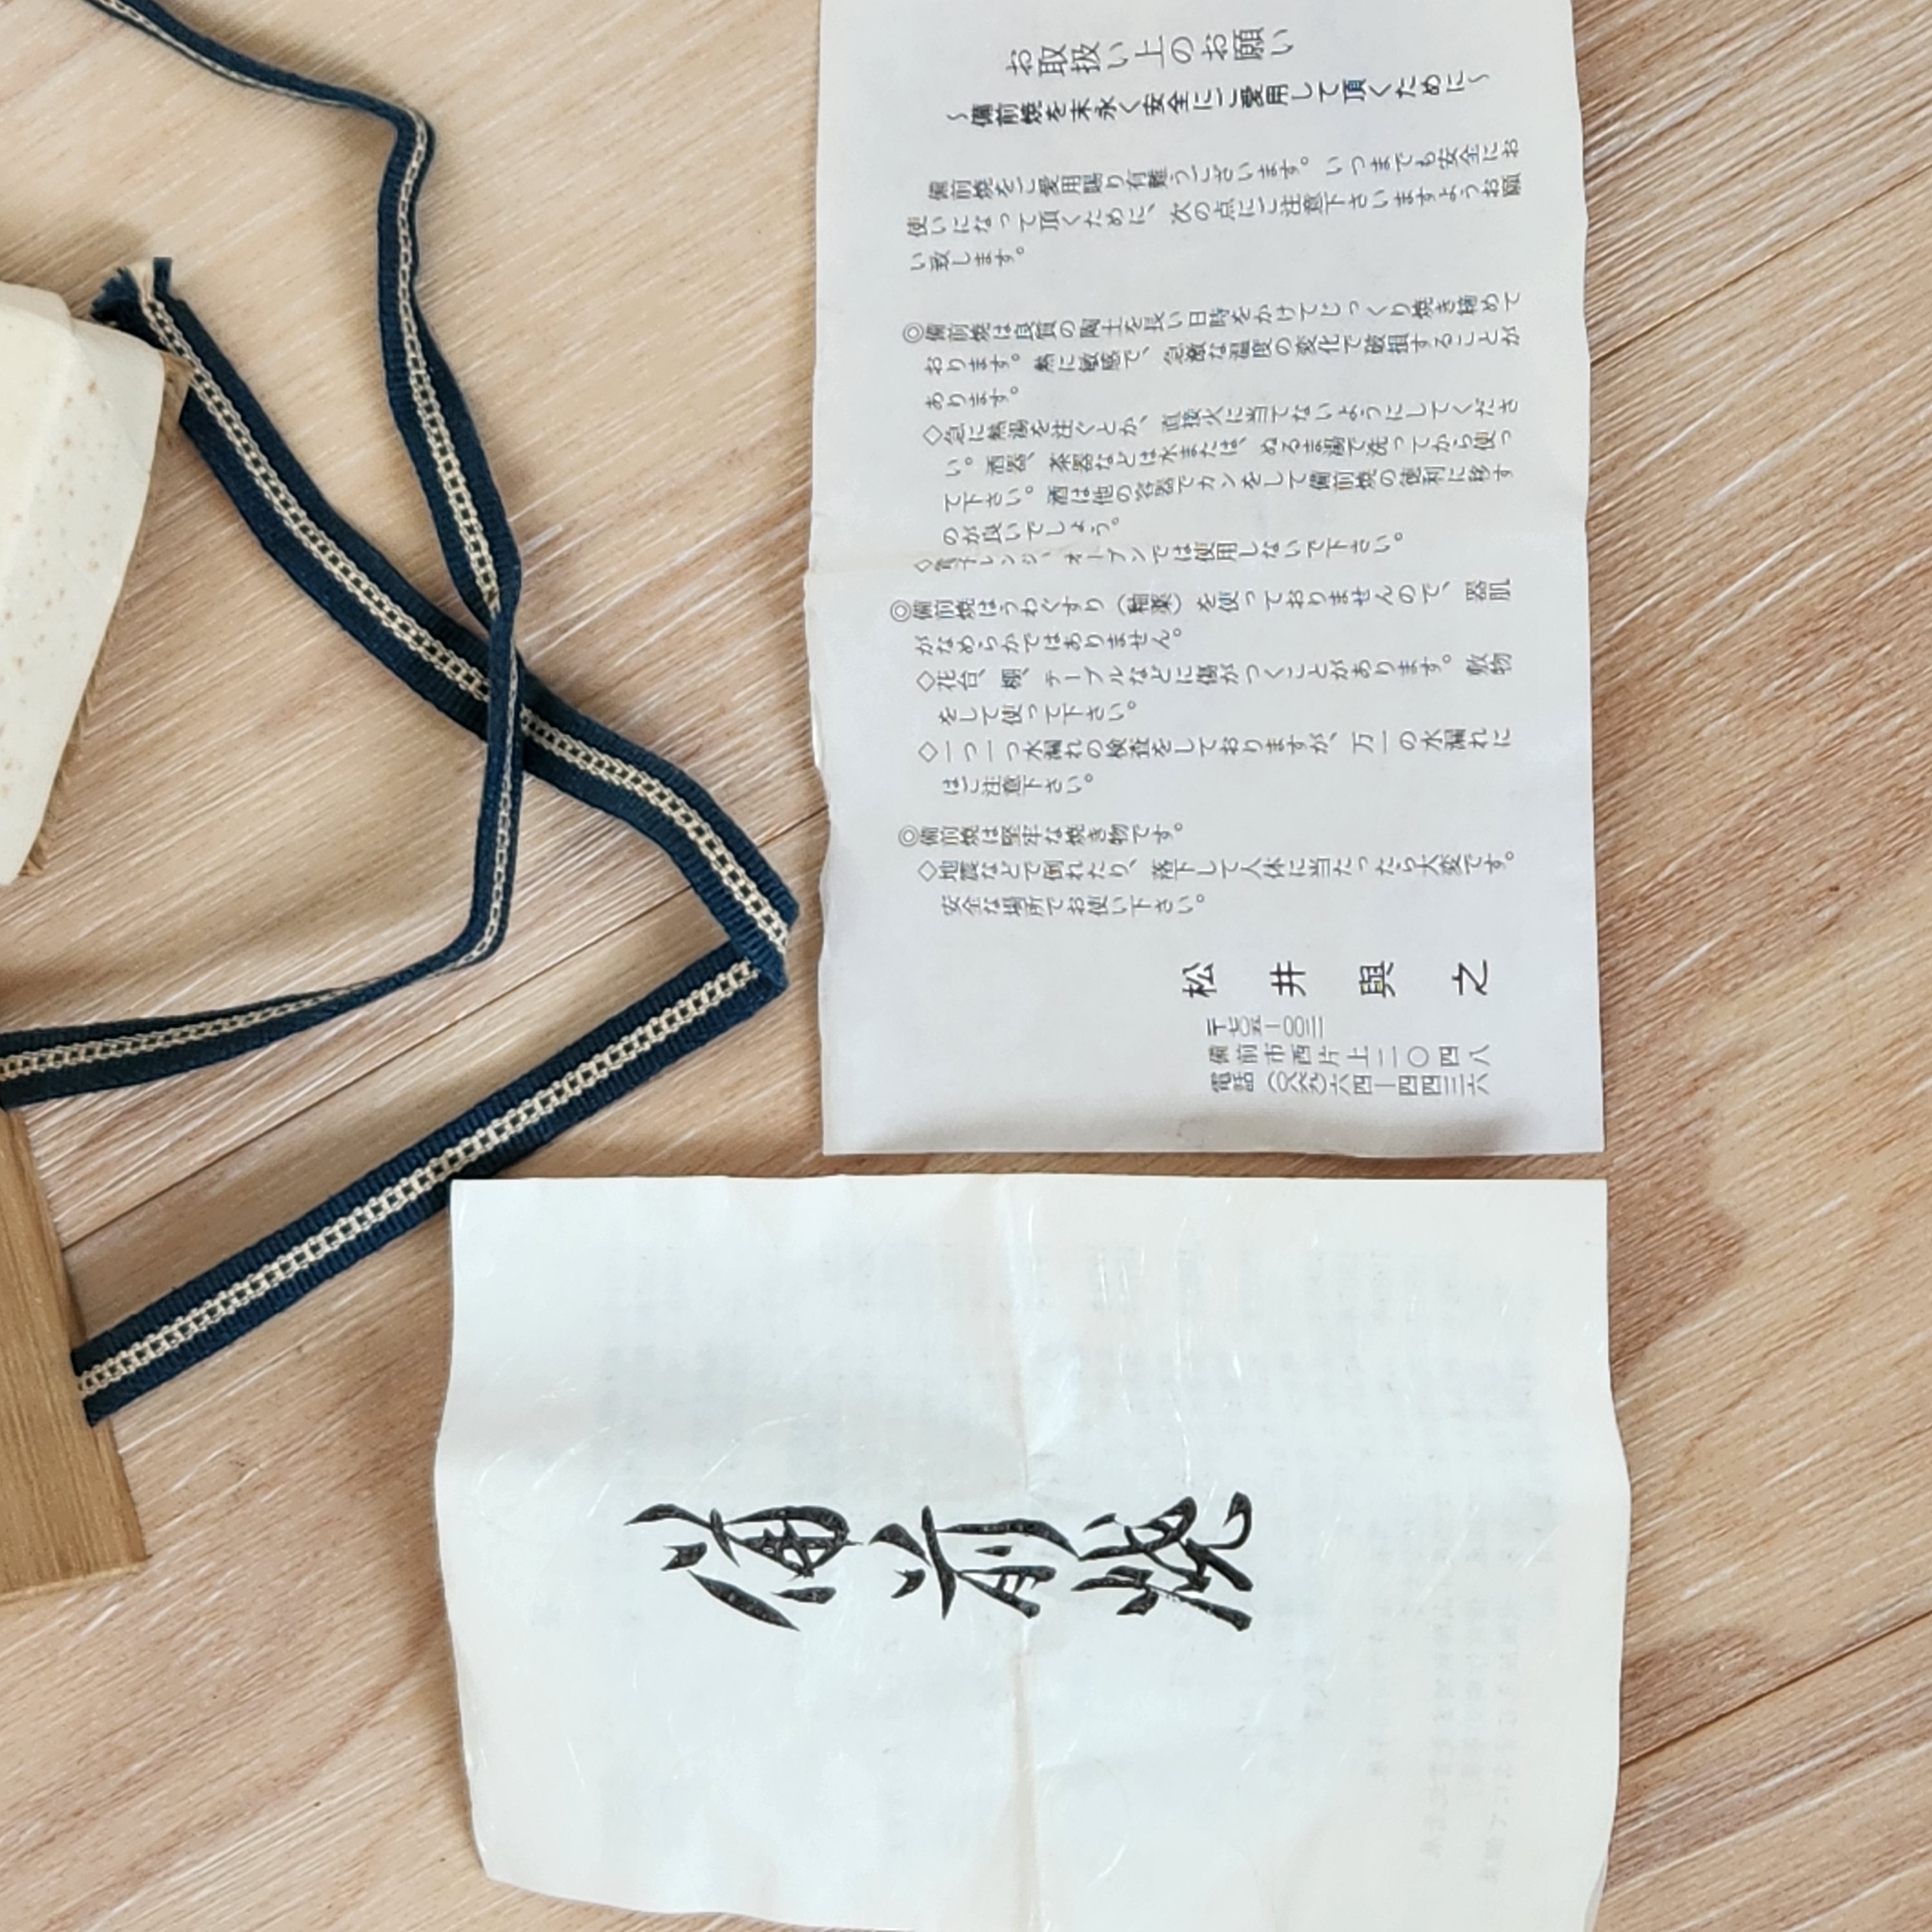 お取扱い上のお願い
～備前焼を末永く安全にご愛用して頂くために～
備前焼をご愛用賜り有難うございます。いつまでも安全にお
使いになって頂くために、次の点にご注意下さいますようお願
い致します。
◎備前焼は良質の陶土を長い日時をかけてじっくり焼き締めて
おります。熱に敏感で、急激な温度の変化で破損することが
あります。
◇急に熱湯を注ぐとか、直接火に当てないようにしてくださ
い。酒器、茶器などは水または、ぬるま湯で洗ってから使っ
て下さい。酒は他の容器でカンをして備前焼の徳利に移す
のが良いでしょう。
◇電子レンジ、オーブンでは使用しないで下さい。
◎備前焼はうわぐすり（釉薬）を使っておりませんので、器肌
がなめらかではありません。
◇花台、棚、テーブルなどに傷がつくことがあります。敷物
をして使って下さい。
◇一つ一つ水漏れの検査をしておりますが、万一の水漏れに
はご注意下さい。
◎備前焼は堅牢な焼き物です。
◇地震などで倒れたり、落下して人体に当たったら大変です。
安全な場所でお使い下さい。
松井與之
〒七〇五―〇〇二二
備前市西片上二〇四八
電話（〇八六九）六四―四四三六
備前焼